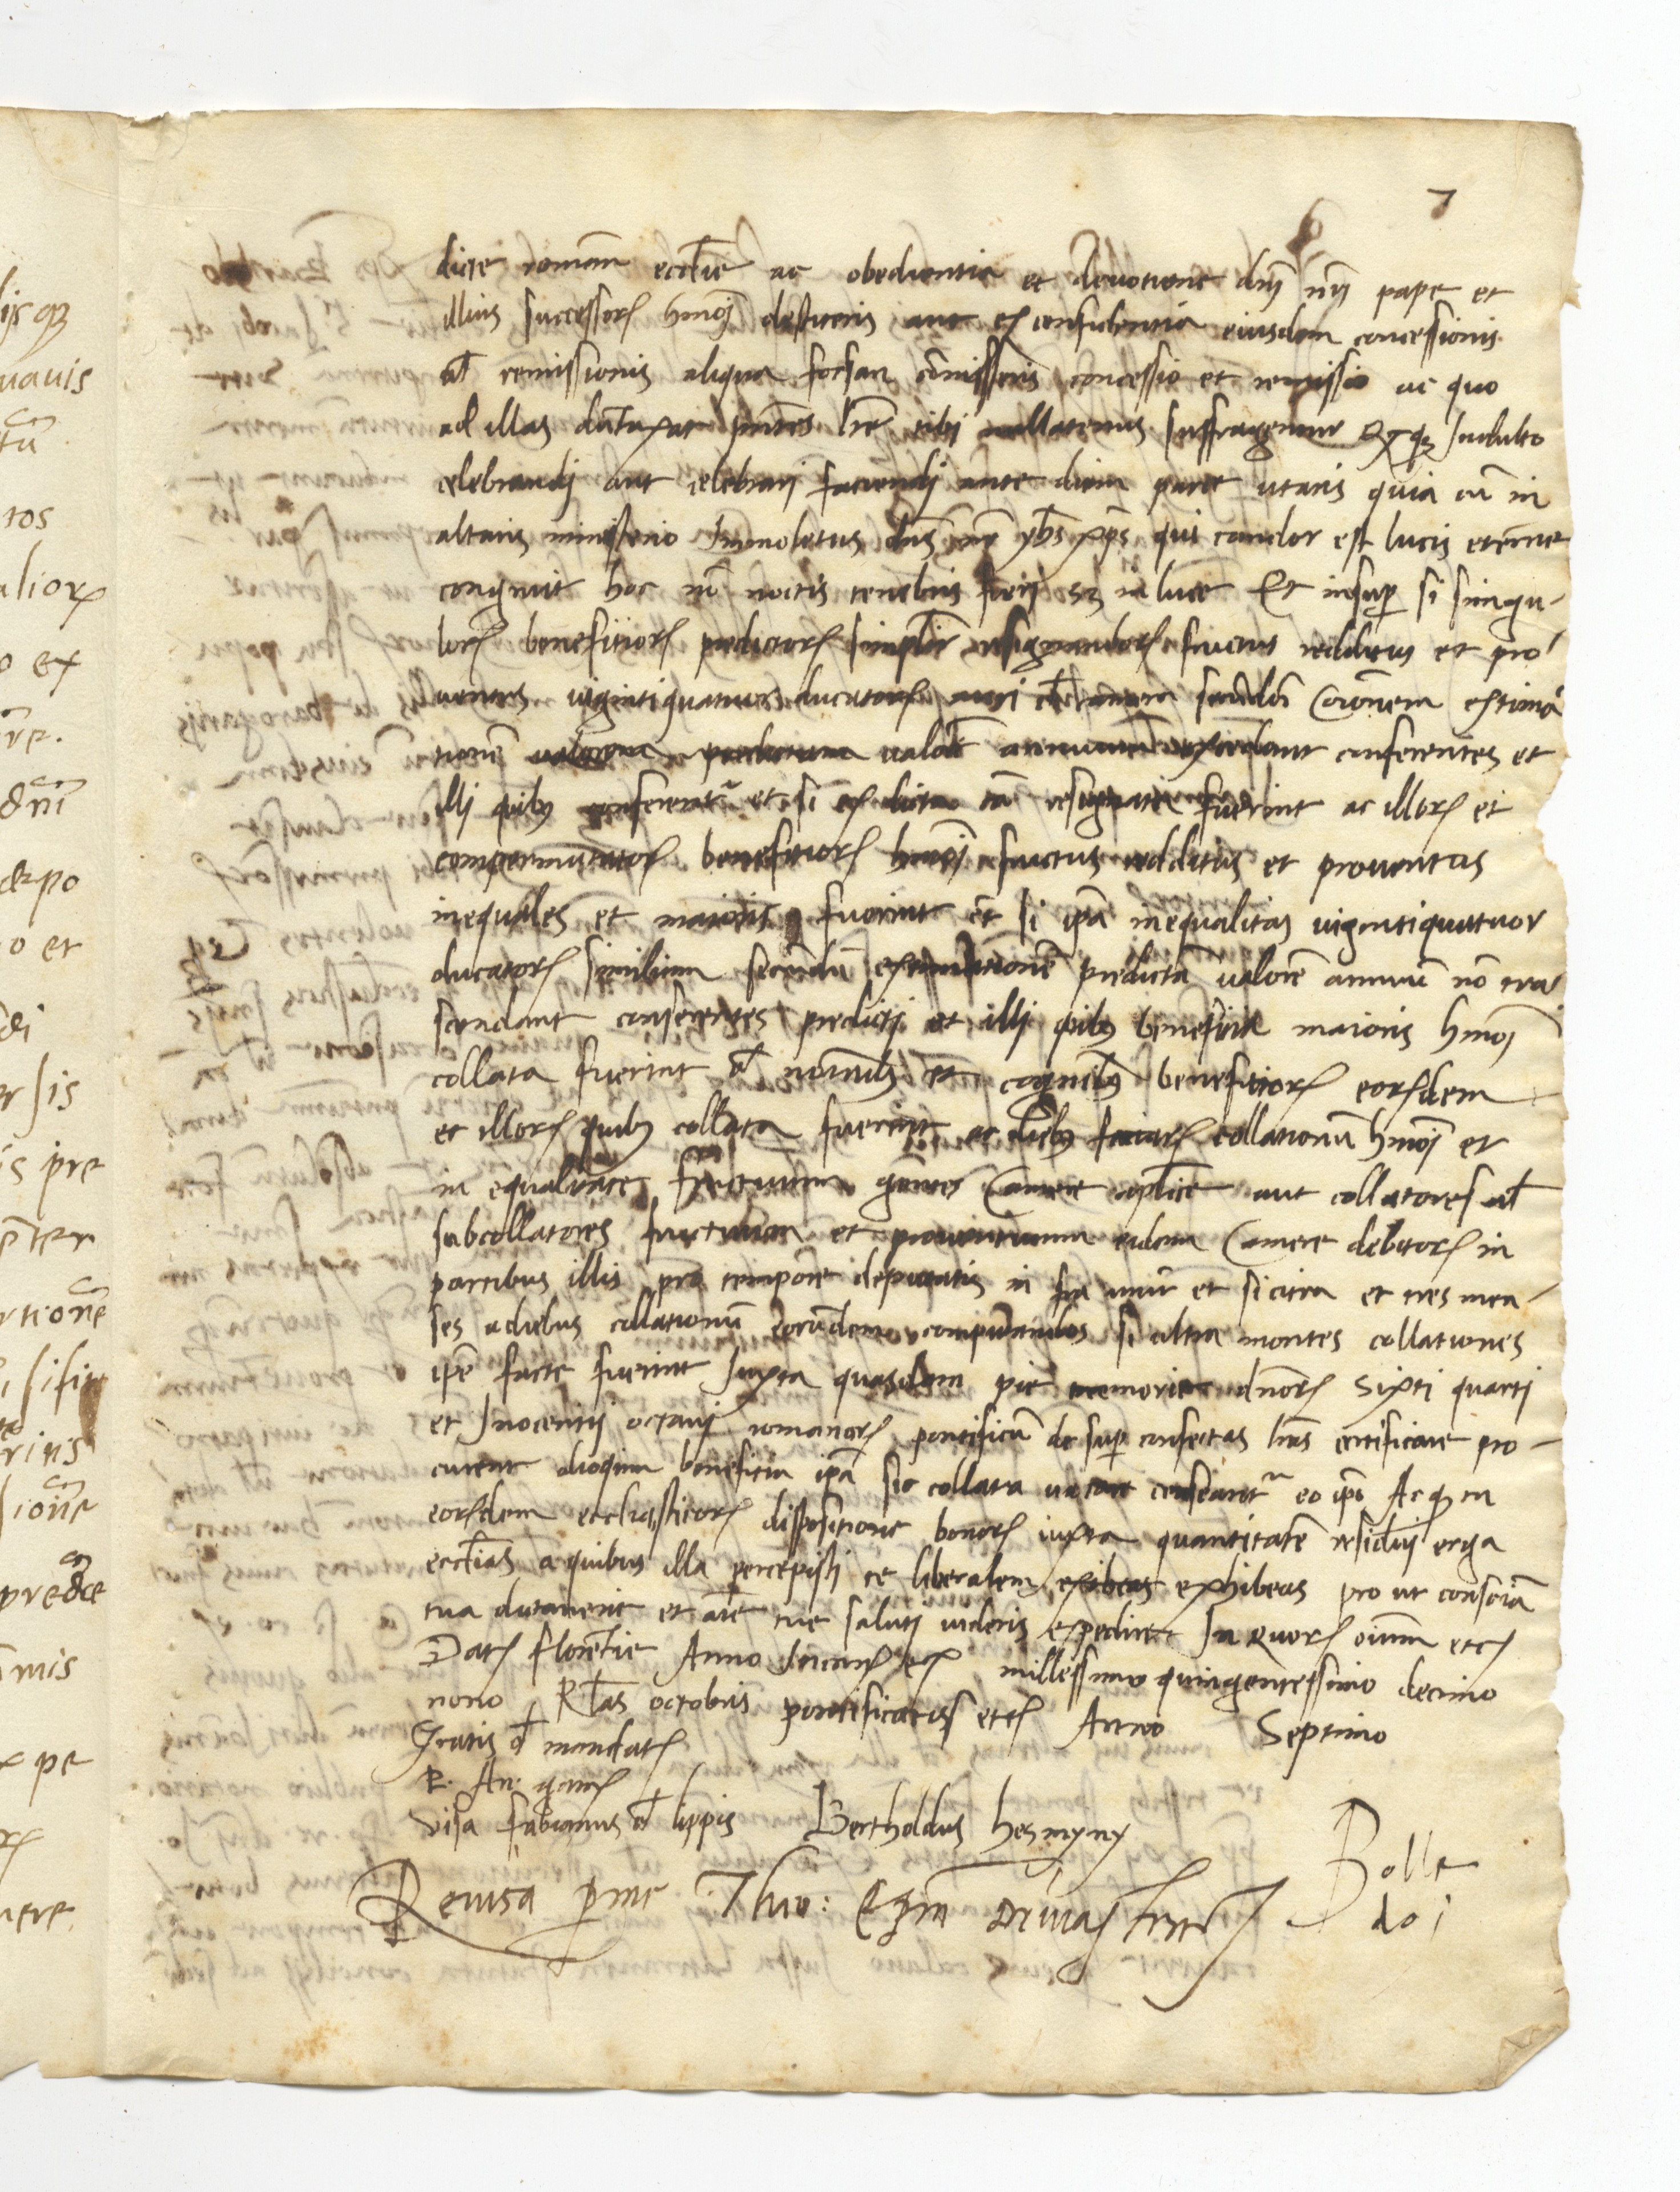 7
dicte romane ecclie ac obedientia et devotione dnj nrj pape et
illius successorȝ hmoj destiteris aut ex confidentia eiusdem concessionis
vl remissionis aliqua forsan comisseris concessio et remissio ac quo
ad illas dutaxat pntes lre tibi nullatenus suffragentur Qȝqȝ Indulto
celebrandj aut celebrarj faciendj ante diem parce utaris quia cu in
altaris ministerio Immoletur dns nr yhs xps qui candor est lucis eterne
congruit hoc no noctis tenebris fierj sȝ in luce Et insup si singu-
lorȝ benefitiorȝ predictorȝ simplr resignandorȝ fructus redditus et pro
ventus vigintiquatuor ducatorȝ auri de camera secundu Coronem extima
tionem valore annuum excedant conferentes et
illi quibȝ conferentr et si ex dicta ca resignata fuerint ac illorȝ et
compermutatorȝ benefitiorȝ hmoj fructus redditus et proventus
inequales et maioris fuerint et si ipa inequalitas vigintiquattuor
ducatorȝ similium secundu extimatione predicta valore annuu no tra
scendant conferentes predictj et illj quibȝ benefitia maioris hmoj
collata fuerint d nominibȝ et cognoibȝ benefitiorȝ eorȝdem
et illorȝ quibȝ collata fuerint ac diebȝ factarȝ collationu hmoj et
in equalitate fructuum gentes Camere aplice aut collatores vl
subcollatores fructuum et proventuum eidem Camere debitorȝ in
partibus illis pro tempore deputatis in fra unu et si citra et tres men-
ses a diebus collationu eorundem computandos si ultra montes collationes
ipe facte fuerint Juxta quasdem pie memorie dnorȝ Sixti quarti
et Inocentij octavj romanorȝ pontificu de sup confectas lras certificare pro-
curent alioquin beneficia ipa sic collata vacare censeantr eo ipo Ac qȝ in
eorȝdem eccliasticorȝ dispositione bonorȝ iuxta quantitate residuj erga
ecclias a quibus illa percepisti te liberalem exibeas exhibeas pro ut conscia
tua dictaverit et aie tue salutj videris expedire In quorȝ oium etcȝ
Datȝ florentie Anno Incarȝ etcȝ millessimo quingentessimo decimo
nono Klas octobris pontificatus etcȝ Anno Septimo
Gratis d mandatȝ
Visa fabianus d lippis Bertholdus
Revisa p me Tho:
Bolle
doi